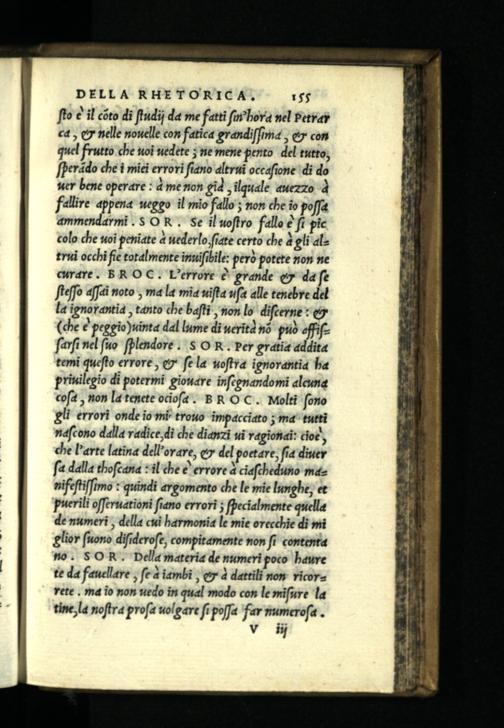 DELLA RHETORICA. 155
sto è il cōto di studij da me fatti sin'hora nel Petrar
ca, & nelle nouelle con fatica grandissima, & con
quel frutto che uoi uedete; ne mene pento del tutto,
sperādo che i miei errori siano altrui occasione di do
uer bene operare: à me non già, ilquale auezzo à
fallire appena ueggo il mio fallo; non che io possa
ammendarmi. SOR. Se il uostro fallo è si pic
colo che uoi peniate à uederlo, siate certo che à gli al-
trui occhi fie totalmente inuisibile: però potete non ne
curare. BROC. L'errore è grande & da se
stesso assai noto, ma la mia uista usa alle tenebre del
la ignorantia, tanto che basti, non lo discerne: &
(che è peggio) uinta dal lume di uerità nō può affis-
sarsi nel suo splendore. SOR. Per gratia addita
temi questo errore, & se la uostra ignorantia ha
priuilegio di potermi giouare insegnandomi alcuna
cosa, non la tenete ociosa. BROC. Molti sono
gli errori onde io mi trouo impacciato; ma tutti
nascono dalla radice, di che dianzi ui ragionai: cioè,
che l'arte latina dell'orare, & del poetare, sia diuer
sa dalla thoscana: il che è errore à ciascheduno ma-
nifestissimo: quindi argomento che le mie lunghe, et
puerili osseruationi siano errori; specialmente quella
de numeri, della cui harmonia le mie orecchie di mi
glior suono disiderose, compitamente non si contenta
no. SOR. Della materia de numeri poco haure
te da fauellare, se à iambi, & à dattili non ricor-
rete. ma io non uedo in qual modo con le misure la
tine, la nostra prosa uolgare si possa far numerosa.
V iij